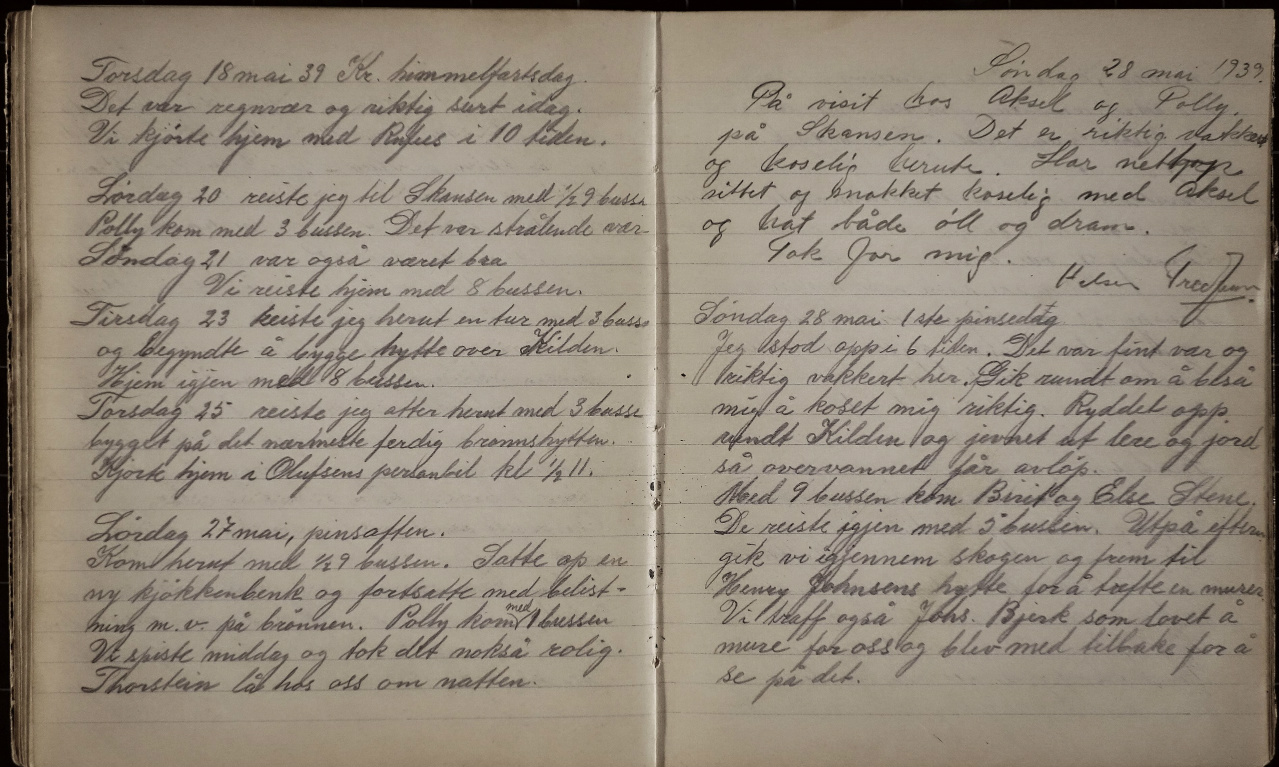 Torsdag 18 mai 39 Kr. himmelfartsdag.
Det var regnvær og riktig surt idag.
Vi kjørte hjem med Rufus i 10 tiden.
Lørdag 20 reiste jeg til Skansen med ½9 bussen
Polly kom med 3 bussen. Det var strålende vær
Søndag 21 var også været bra
Vi reiste hjem med 8 bussen.
Tirsdag 23 reiste jeg herut en tur med 3 bussen
og begyndte å bygge hytte over Kilden.
Hjem igjen med 8 bussen.
Torsdag 25 reiste jeg atter herut med 3 bussen
bygget på det nærmeste ferdig brønnshytten.
Kjørte hjem i Olufsens personbil kl ½11.
Lørdag 27 mai, pinsaften.
Kom herut med ½9 bussen. Satte op en
ny kjøkkenbenk og fortsatte med belist-
ning m.v. på brønnen. Polly kom med 1 bussen
Vi spiste middag og tok det nokså rolig.
Thorstein lå hos oss om natten.
Søndag 28 mai 1939.
På visit hos Aksel og Polly
på Skansen. Det er riktig vakkert
og koselig herute. Har netop
sittet og snakket koselig med Aksel
og hat både öll og dram.
Tak for mig.
Hilsen
Søndag 28 mai 1ste pinsedag
Jeg stod opp i 6 tiden. Det var fint vær og
riktig vakkert her. Gik rundt om å beså
mig å koset mig riktig. Ryddet opp
rundt Kilden og jevnet ut lere og jord
så overvannet får avløp.
Med 9 bussen kom Berit og Else Stene.
De reiste igjen med 5 bussen. Utpå efterm
gik vi igjennem skogen og frem til
Henry Johnsens hytte for å træffe en murer.
Vi traff også Johs. Bjerk som lovet å
mure for oss og blev med tilbake for å
se på det.